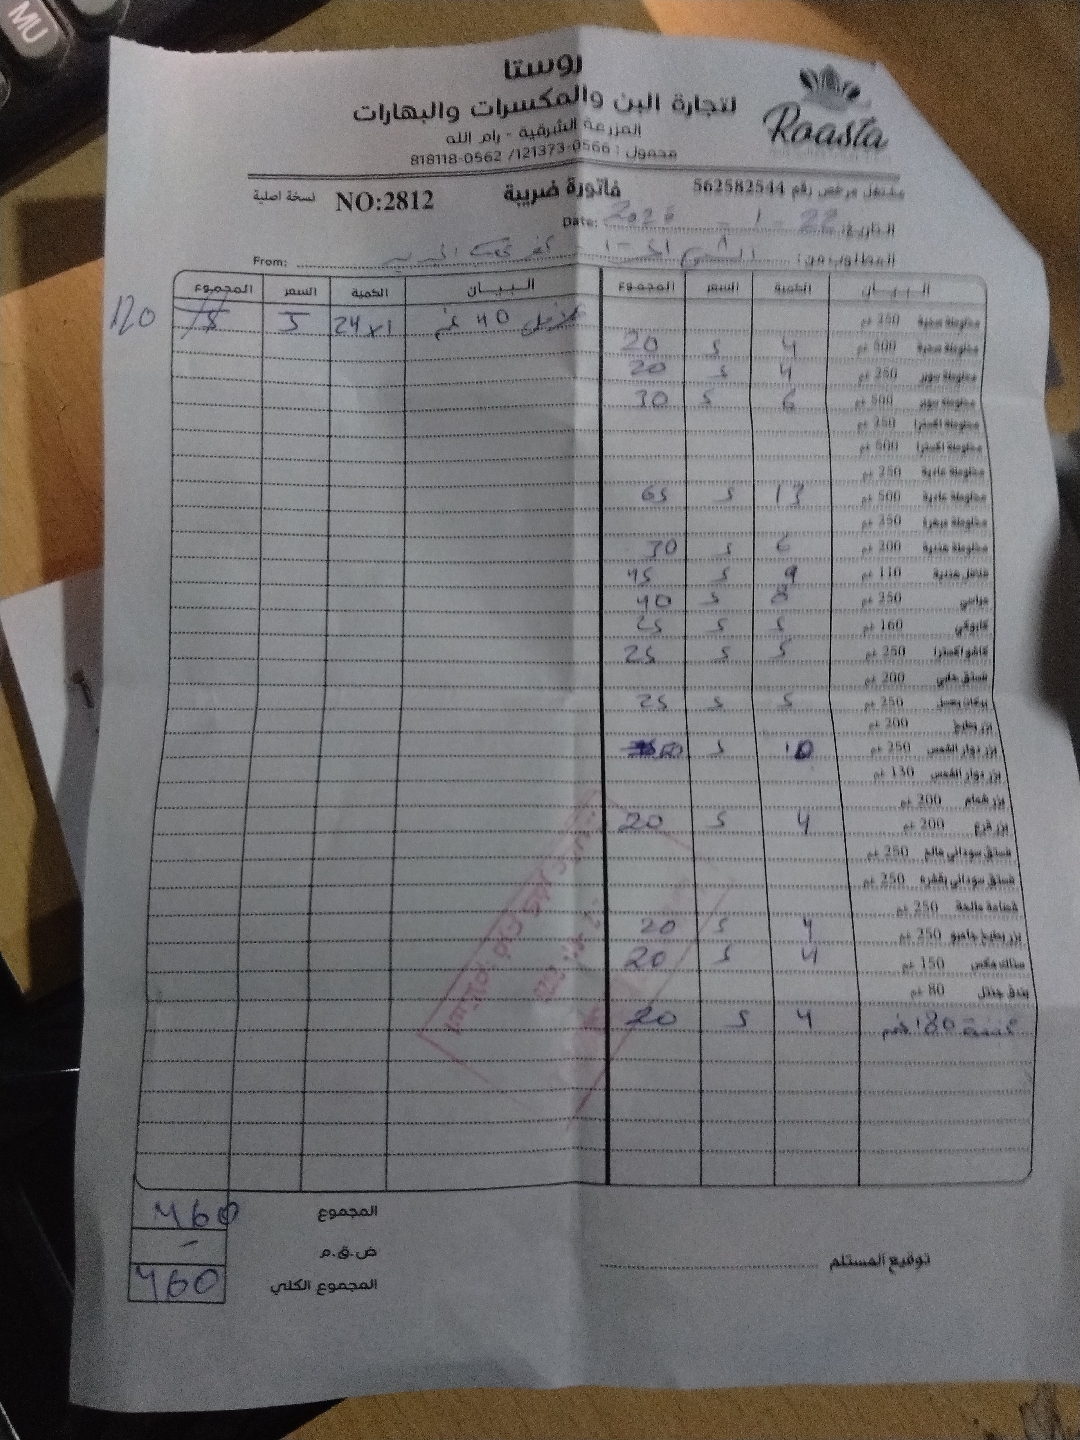 MU
روستا
لتجارة البن والمكسرات والبهارات
Roasta
المزرعة الشرقية - رام الله
محمول : 0566-121373 /0562-818118
مشتغل مرخص رقم 562582544 فاتورة ضريبة NO:2812 نسخة اصلية
التاريخ: 22 - 1 - 2026 Date:
المطلوب من: From:
البيـــان الكمية السعر المجموع البيـــان الكمية السعر المجموع
مخلوطة مميزة 250 غم 40 غم 24x1 5 120
مخلوطة مميزة 500 غم 4 5 20
مخلوطة سوبر 250 غم 4 5 20
مخلوطة سوبر 500 غم 6 5 30
مخلوطة اكسترا 250 غم
مخلوطة اكسترا 500 غم
مخلوطة عادية 250 غم
مخلوطة عادية 500 غم 13 5 65
مخلوطة مبهرة 250 غم
مخلوطة هندية 200 غم 6 5 30
فلافل هندية 110 غم 9 5 45
250 غم 8 5 40
160 غم 5 5 25
كاشو اكسترا 250 غم 5 5 25
فستق حلبي 200 غم
250 غم 5 5 25
بزر بطيخ 200 غم
بزر دوار الشمس 250 غم 10 5
بزر دوار الشمس 130 غم
بزر شمام 200 غم
بزر قرع 200 غم 4 5 20
فستق سوداني مالح 250 غم
فستق سوداني بقشره 250 غم
قضامة مالحة 250 غم
بزر بطيخ جامبو 250 غم 4 5 20
سناك مكس 150 غم 4 5 20
80 غم
180 غم 4 5 20
المجموع 460
ض.ق.م -
المجموع الكلي 460
توقيع المستلم